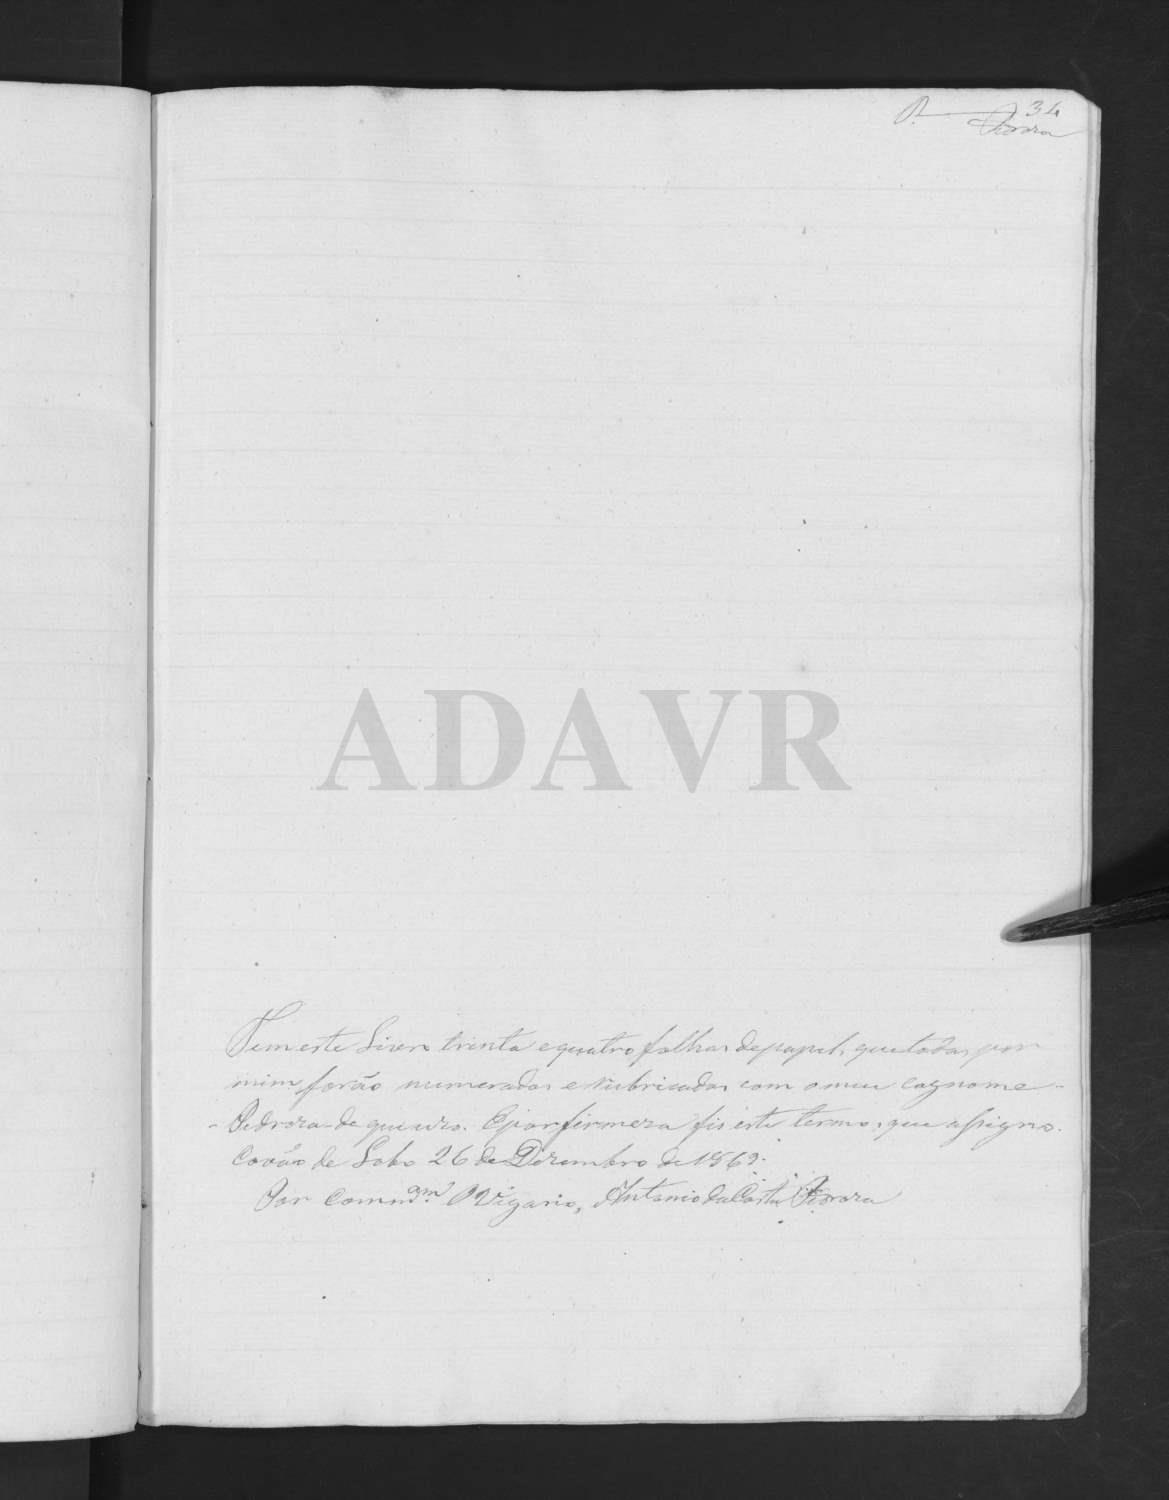 34
Pedrora
ADAVR
Tem este Livro trinta e quatro folhas de papel, que todas por
mim forão numeradas e rubricadas com o meu cognome -
- Pedrora - de que uzo. E por firmeza fis este termo, que assigno.
Covão de Lobo 26 de Dezembro de 1869.
Por Comm.am O Vigario, Antonio da Costa Pedrora